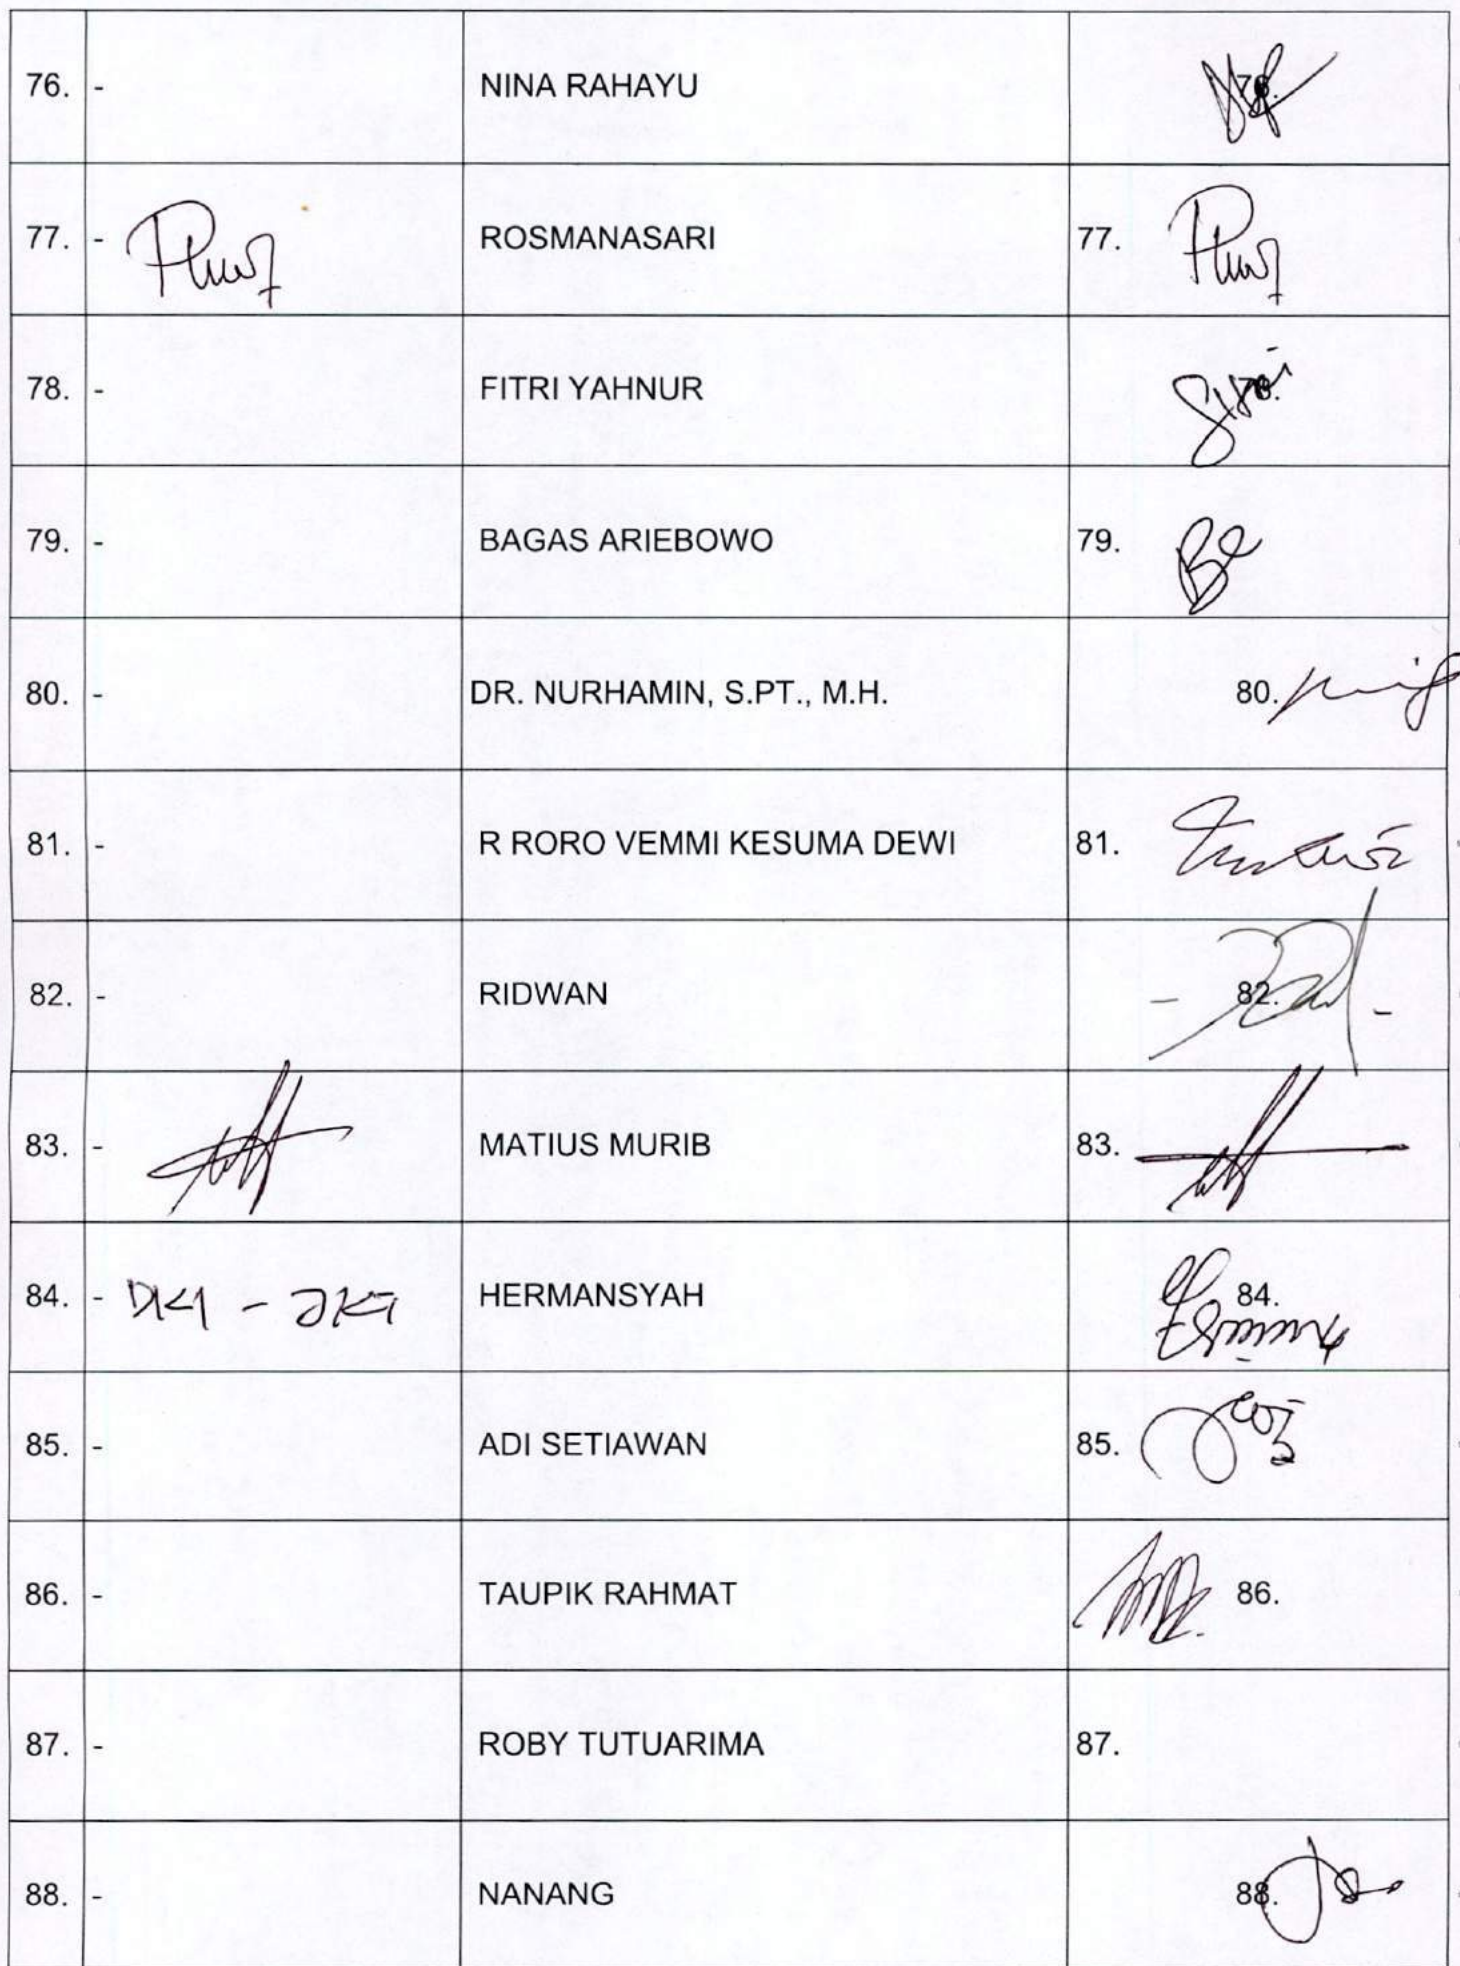 76. - NINA RAHAYU 76.
77. - ROSMANASARI 77.
78. - FITRI YAHNUR 78.
79. - BAGAS ARIEBOWO 79.
80. - DR. NURHAMIN, S.PT., M.H. 80.
81. - R RORO VEMMI KESUMA DEWI 81.
82. - RIDWAN 82.
83. - MATIUS MURIB 83.
84. - DKI - JKT HERMANSYAH 84.
85. - ADI SETIAWAN 85.
86. - TAUPIK RAHMAT 86.
87. - ROBY TUTUARIMA 87.
88. - NANANG 88.